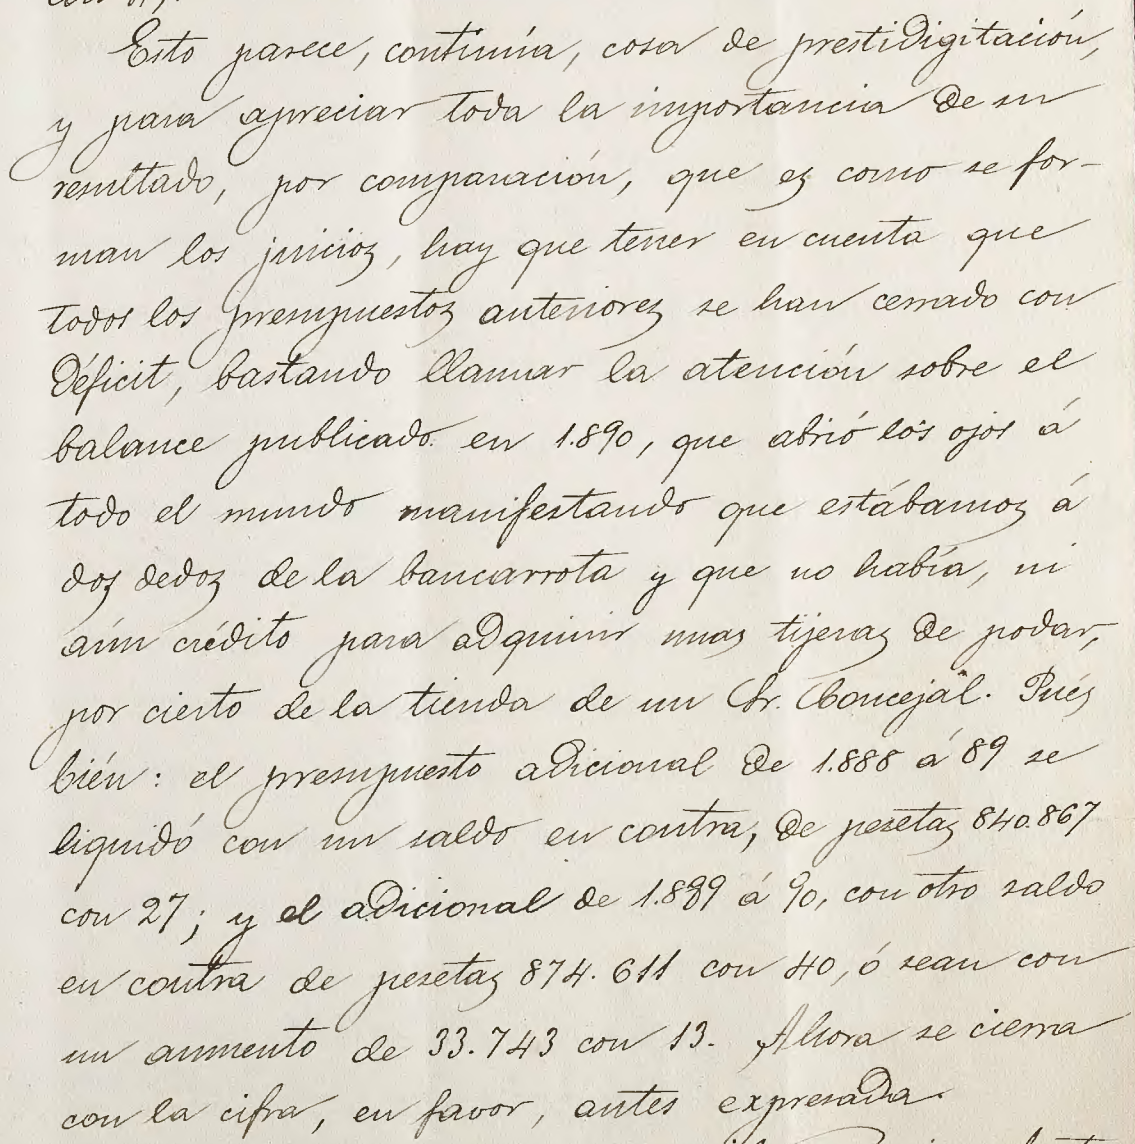 Esto parece, continúa, cosa de prestidigitación,
y para apreciar toda la importancia de su
resultado, por comparación, que es como se for-
man los juicios, hay que tener en cuenta que
todos los presupuestos anteriores se han cerrado con
déficit, bastando llamar la atención sobre el
balance publicado en 1.890, que abrió los ojos á
todo el mundo manifestando que estábamos á
dos dedos de la bancarrota y que no había, ni
aún crédito para adquirir unas tijeras de podar,
por cierto de la tienda de un Sr. Concejal. Pués
bién: el presupuesto adicional de 1.888 á 89 se
liquidó con un saldo en contra, de pesetas 840.867
con 27; y el adicional de 1.889 á 90, con otro saldo
en contra de pesetas 874.611 con 40, ó sean con
un aumento de 33.743 con 13. Ahora se cierra
con la cifra, en favor, antes expresada.